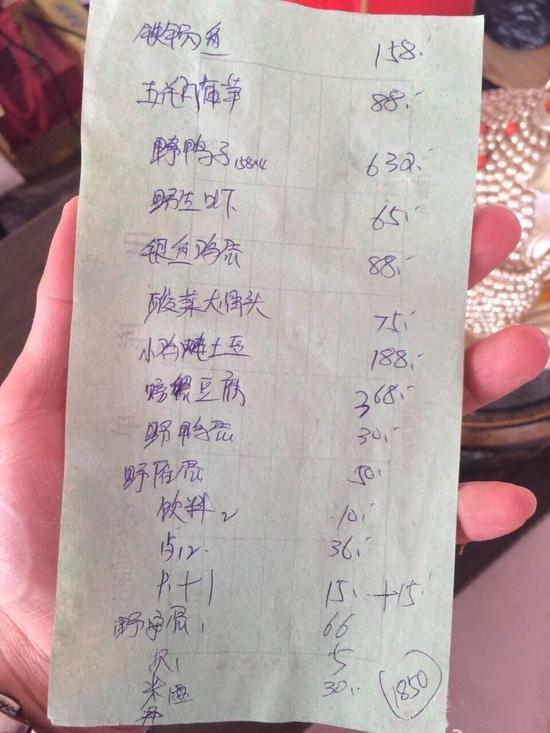 铁锅鱼 158.-
五花肉海笋 88.-
野鸭子158×4 632.-
野生 65.-
银鱼鸡蛋 88.-
酸菜大骨头 75.-
小鸡炖土豆 188.-
螃蟹豆腐 368.-
野鸭蛋 30.-
野 蛋 50.-
饮料2 10.-
12. 36.-
1+1 15.- +15.-
野 蛋1 66
1 5
米酒 30.- 1850